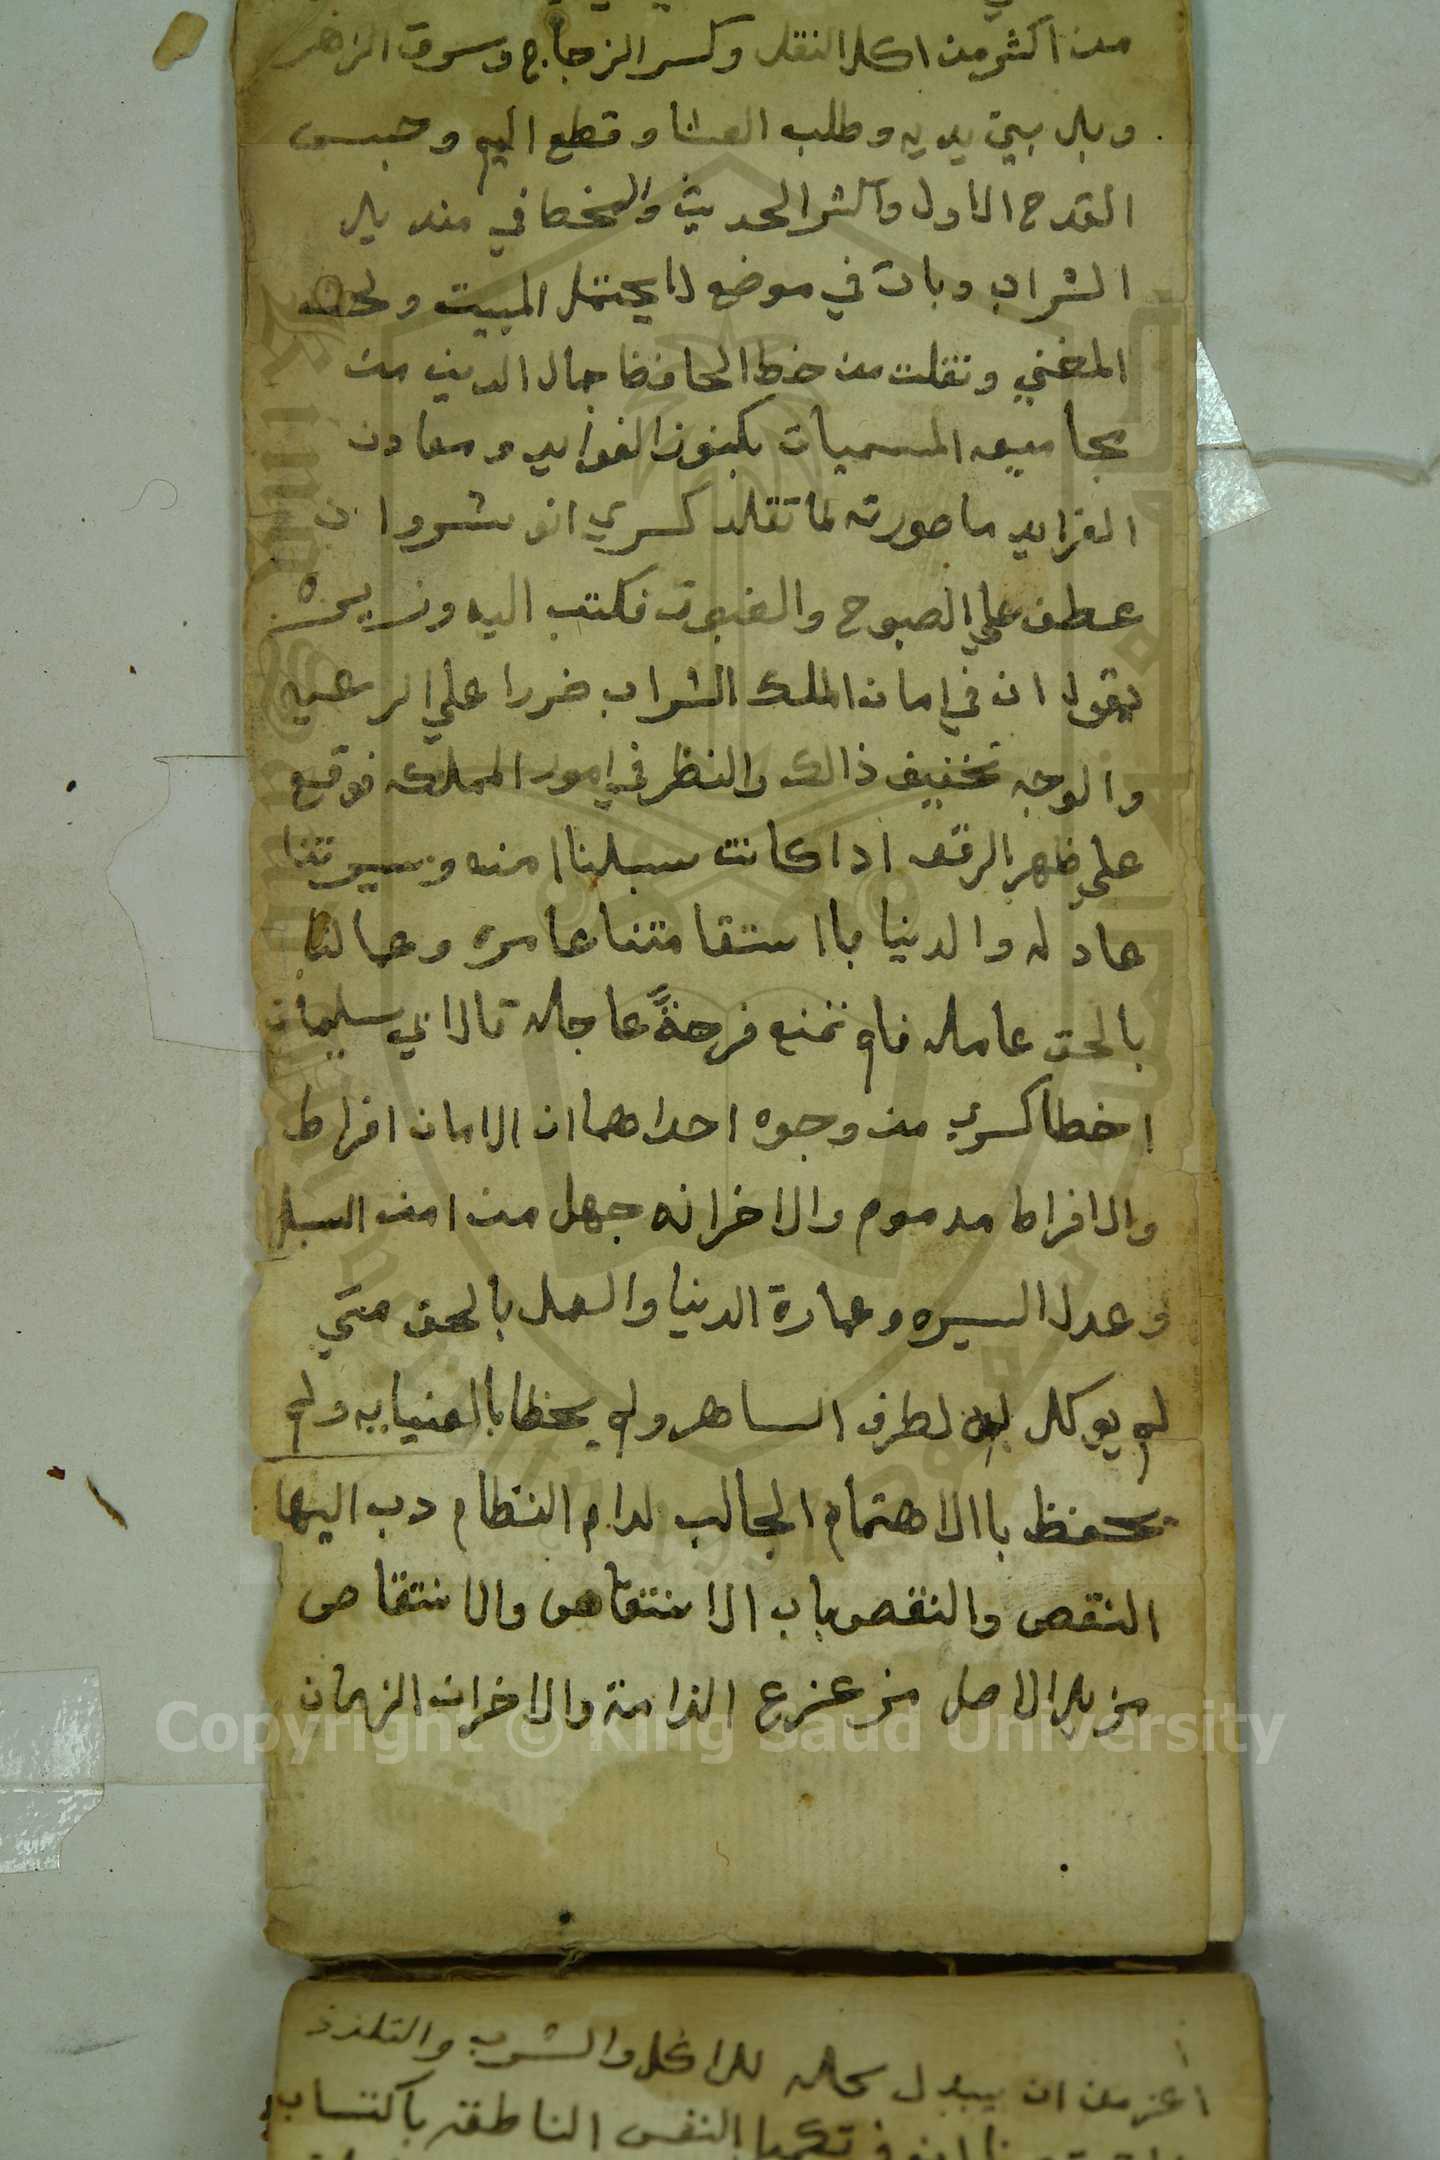 من اكثر من اكل النقل وكسر الزجاج وسرق الزهر
وبل بين يديه وطلب العشا وقطع اليم وحبس
القدح الاول واكثر الحديث وامخط في منديل
الشراب وبات في موضع لا يحتمل المبيت ولحن
المغني ونقلت من خط الحافظ جمال الدين من
مجاميعه المسميات بكنوز الفوايد ومعادن
الفرايد ما صورته لما تقلد كسري انو شروان
عطف علي الصبوح والغبوق فكتب اليه وزيره
يقول ان في امان الملك الشراب ضررا علي الرعيه
والوجه تخفيف ذالك والنظر في امور المملكه فوقع
علي ظهر الرقعه اذا كانت سبلنا امنه وسيرتنا
عادله والدنيا باستقامتنا عامره وعمالنا
بالحق عامله فلم نمنع فرحةً عاجله قال ابي سليمان
اخطا كسري من وجوه احداهما ان الامان افراط
والافراط مدموم والاخر انه جهل من امن السبل
وعدل السيره وعمارة الدنيا والعمل بالحق متي
لم يوكل لطرف الساهر ولم يحظا بالعنيايه ولم
يحفظ باالاهتمام الجالب لدام النظام دب اليها
النقص والنقص باب الانتقاص والانتقاص
مزيل الاصل مزعزع الدامة والاخر ان الزمان
اعز من ان يبدل كله للاكل والشرب والتلذذ
تكميل النفس الناطقه باكتساب
Copyright © King Saud University